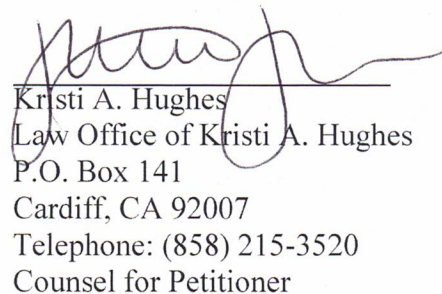 Kristi A. Hughes
Law Office of Kristi A. Hughes
P.O. Box 141
Cardiff, CA 92007
Telephone: (858) 215-3520
Counsel for Petitioner